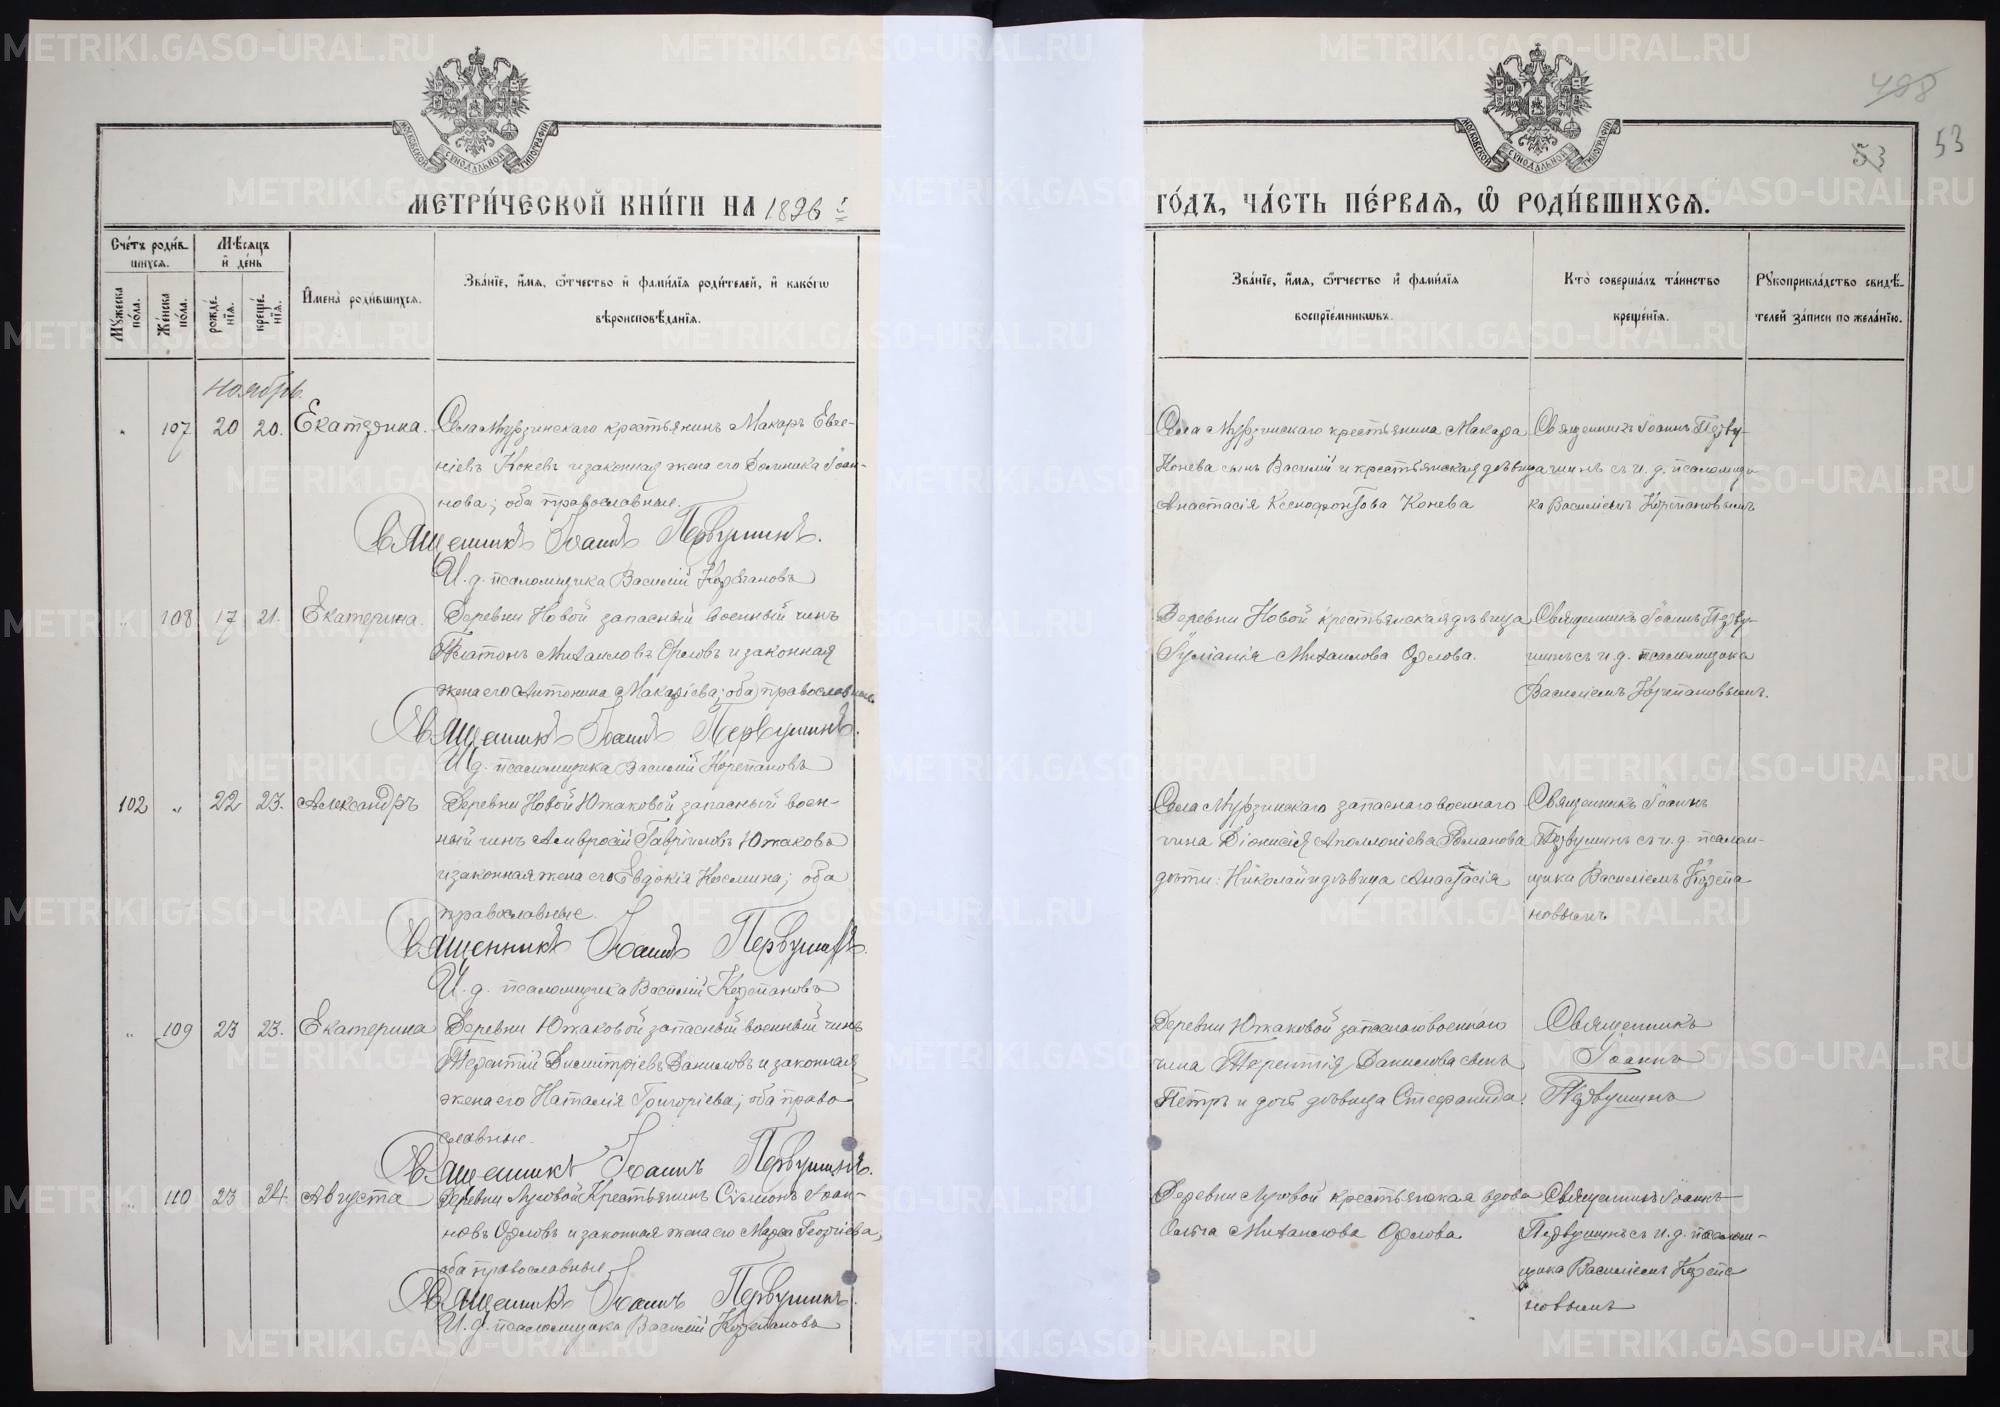 408
53
53
МОСКОВСКОЙ СѴНОДАЛЬНОЙ ТИПОГРАФІИ
МОСКОВСКОЙ СѴНОДАЛЬНОЙ ТИПОГРАФІИ
МЕТРИ́ЧЕСКОЙ КНИ́ГИ НА 1896 г.
ГО́ДЪ, ЧА́СТЬ ПЕ́РВАѦ, Ѡ РОДИ́ВШИХСѦ.
Сче́тъ роди́вшихсѧ.
Мꙋ́жеска по́ла.
Же́нска по́ла.
Мѣ́сѧцъ и҆ де́нь
рожде́нїѧ.
креще́нїѧ.
И҆мена̀ роди́вшихсѧ.
Зва́нїе, и҆́мѧ, ѻ҆́тчество и҆ фами́лїѧ роди́телей, и҆ како́гѡ
вѣроисповѣ́данїѧ.
Зва́нїе, и҆́мѧ, ѻ҆́тчество и҆ фами́лїѧ
воспрїе́мникѡвъ.
Кто̀ соверша́лъ та́инство
креще́нїѧ.
Рꙋкоприкла́дство свидѣ́-
телей за́писи по жела́нїю.
Ноябрь.
" 107 20 20. Екатерина. Села Мурзинскаго крестьянинъ Макаръ Евге-
ніевъ Коневъ и законная жена его Домника Іоан-
нова; оба православные.
Священникъ Іоаннъ Первушинъ.
И. д. псаломщика Василій Корепановъ
Села Мурзинскаго крестьянина Макара
Конева сынъ Василій и крестьянская дѣвица
Анастасія Ксенофонтова Конева
Священникъ Іоаннъ Перву-
шинъ съ и. д. псаломщи-
ка Василіемъ Корепановымъ
" 108 17 21. Екатерина. Деревни Новой запасный военный чинъ
Платонъ Михаиловъ Орловъ и законная
жена его Антонина Макаріева; оба православные
Священникъ Іоаннъ Первушинъ.
И. д. псаломщика Василій Корепановъ
Деревни Новой крестьянская дѣвица
Іуліанія Михаилова Орлова.
Священникъ Іоаннъ Перву-
шинъ съ и. д. псаломщика
Василіемъ Корепановымъ.
102 " 22 23. Александръ Деревни Новой Южаковой запасный воен-
ный чинъ Амвросій Гавріиловъ Южаковъ
и законная жена его Евдокія Космина; оба
православные.
Священникъ Іоаннъ Первушинъ.
И. д. псаломщика Василій Корепановъ
Села Мурзинскаго запаснаго военнаго
чина Діонисія Аполлоніева Романова
дѣти: Николай и дѣвица Анастасія
Священникъ Іоаннъ
Первушинъ съ и. д. псалом-
щика Василіемъ Корепа
новымъ
" 109 23 23. Екатерина Деревни Южаковой запасный военный чинъ
Терентій Димитріевъ Даниловъ и законная
жена его Наталія Григоріева; оба право-
славные.
Священникъ Іоаннъ Первушинъ.
Деревни Южаковой запаснаго военнаго
чина Терентія Данилова сынъ
Петръ и дочь дѣвица Стефанида.
Священникъ
Іоаннъ
Первушинъ
" 110 23 24. Августа Деревни Луговой крестьянинъ Сѵмеонъ Іоан-
новъ Орловъ и законная жена его Марѳа Георгіева,
оба православные.
Священникъ Іоаннъ Первушинъ.
И. д. псаломщика Василій Корепановъ
Деревни Луговой крестьянская вдова
Ольга Михаилова Орлова
Священникъ Іоаннъ
Первушинъ съ и. д. псалом-
щика Василіемъ Корепа
новымъ
METRIKI.GASO-URAL.RU